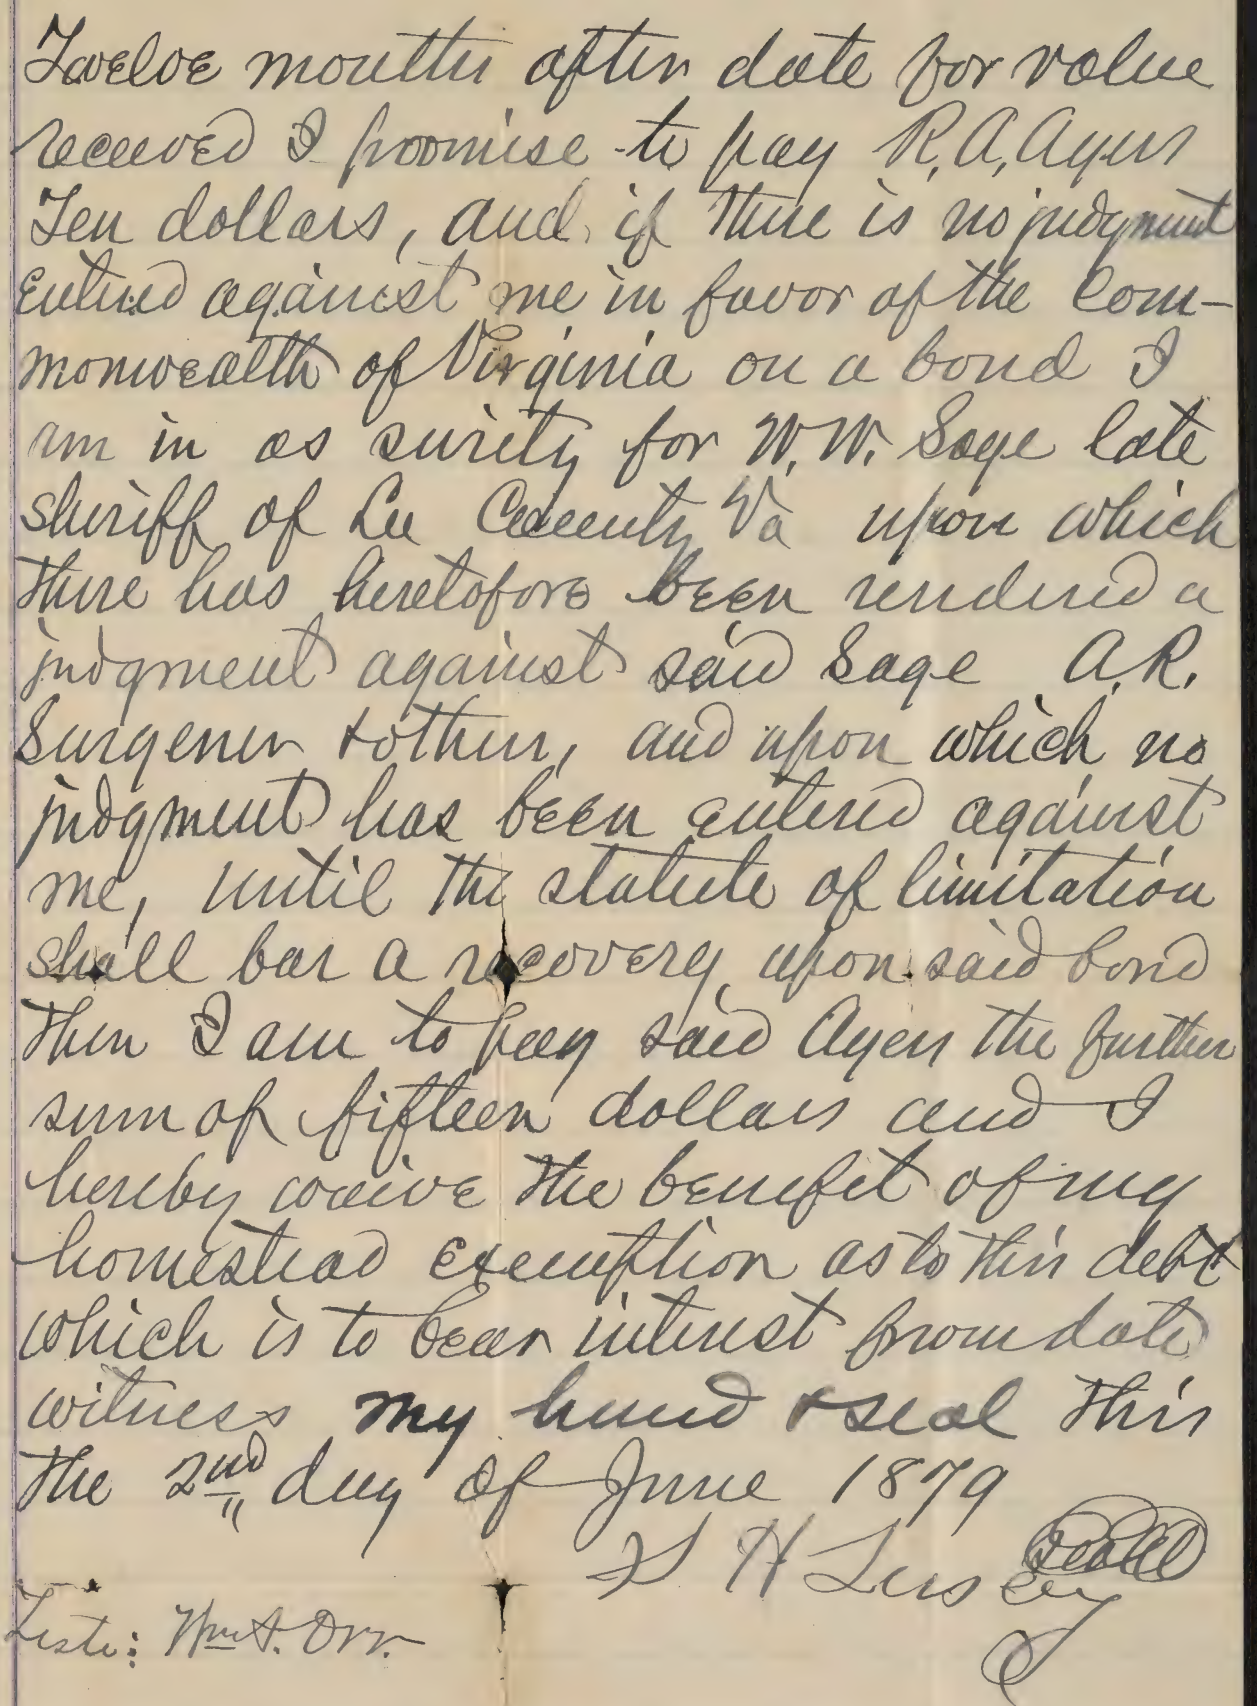 Twelve months after date for value
received I promise to pay R. A. Ayers
Ten dollars, and if there is no judgment
entered against me in favor of the Com-
monwealth of Virginia on a bond I
am in as surety for W. W. Sage late
sheriff of Lee County Va upon which
there has heretofore been rendered a
judgment against said Sage A. R.
Surgener & others, and upon which no
judgment has been entered against
me, until the statute of limitation
shall bar a recovery upon said bond
then I am to pay said Ayers the further
sum of fifteen dollars and I
hereby waive the benefit of my
homestead exemption as to this debt
which is to bear interest from date
witness my hand & seal this
the 2nd day of June 1879
H Seal
Teste: Wm A. Orr.